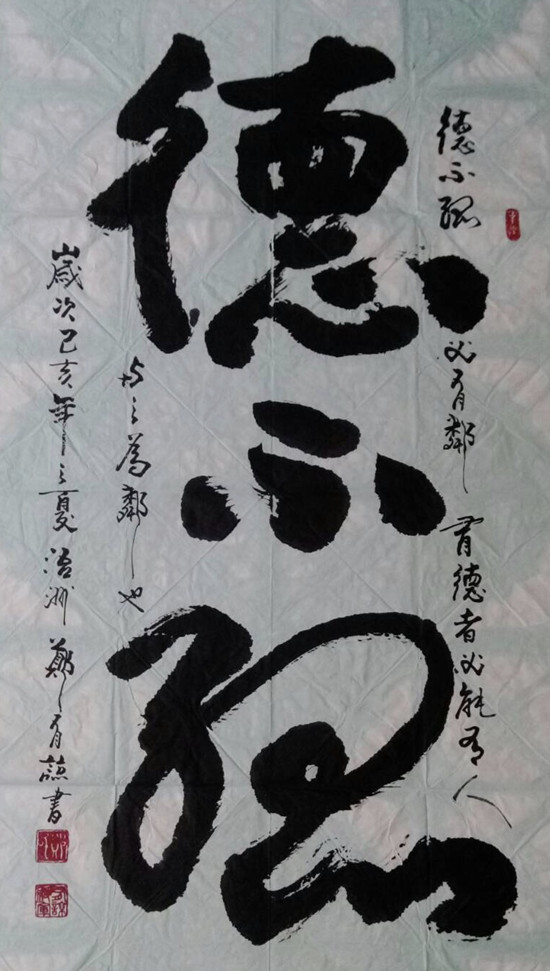 德不孤
德不孤
必有鄰 有德者必能有人
与之為鄰也
歲次己亥年之夏浯洲鄭有書